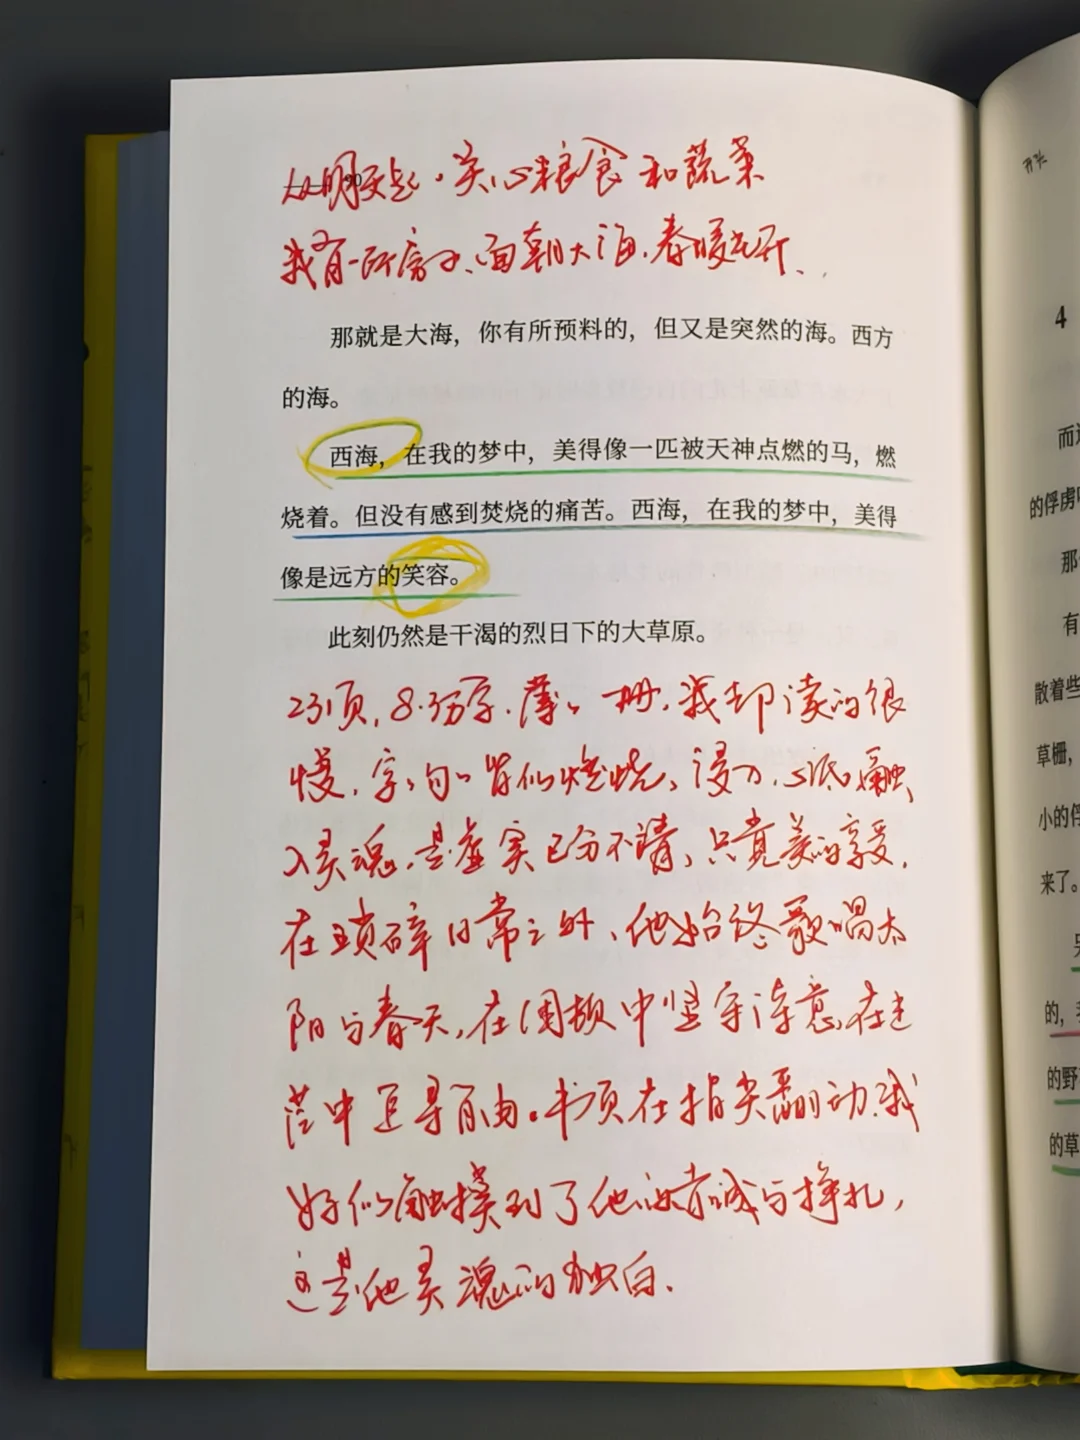 从明天起，关心粮食和蔬菜
90
我有一所房子、面朝大海.春暖花开、
那就是大海，你有所预料的，但又是突然的海。西方
的海。
西海，在我的梦中，美得像一匹被天神点燃的马，燃
烧着。但没有感到焚烧的痛苦。西海，在我的梦中，美得
像是远方的笑容。
此刻仍然是干渴的烈日下的大草原。
231页，8.3万字.薄々一册.我却读的很
慢.字々句々皆似燃烧、浸入心底触
入灵魂.是虚实已分不清、只真美的享受.
在琐碎日常之外、他始终歌唱太
阳与春天，在困顿中坚守诗意，在迷
茫中追寻自由.书页在指尖翻动.我
好似触摸到了他的赤诚与挣扎，
这是他灵魂的独白.
开头
4
而
的俘虏
那
有
散着些
草栅，
小的俘
来了。
的，
的野
的草